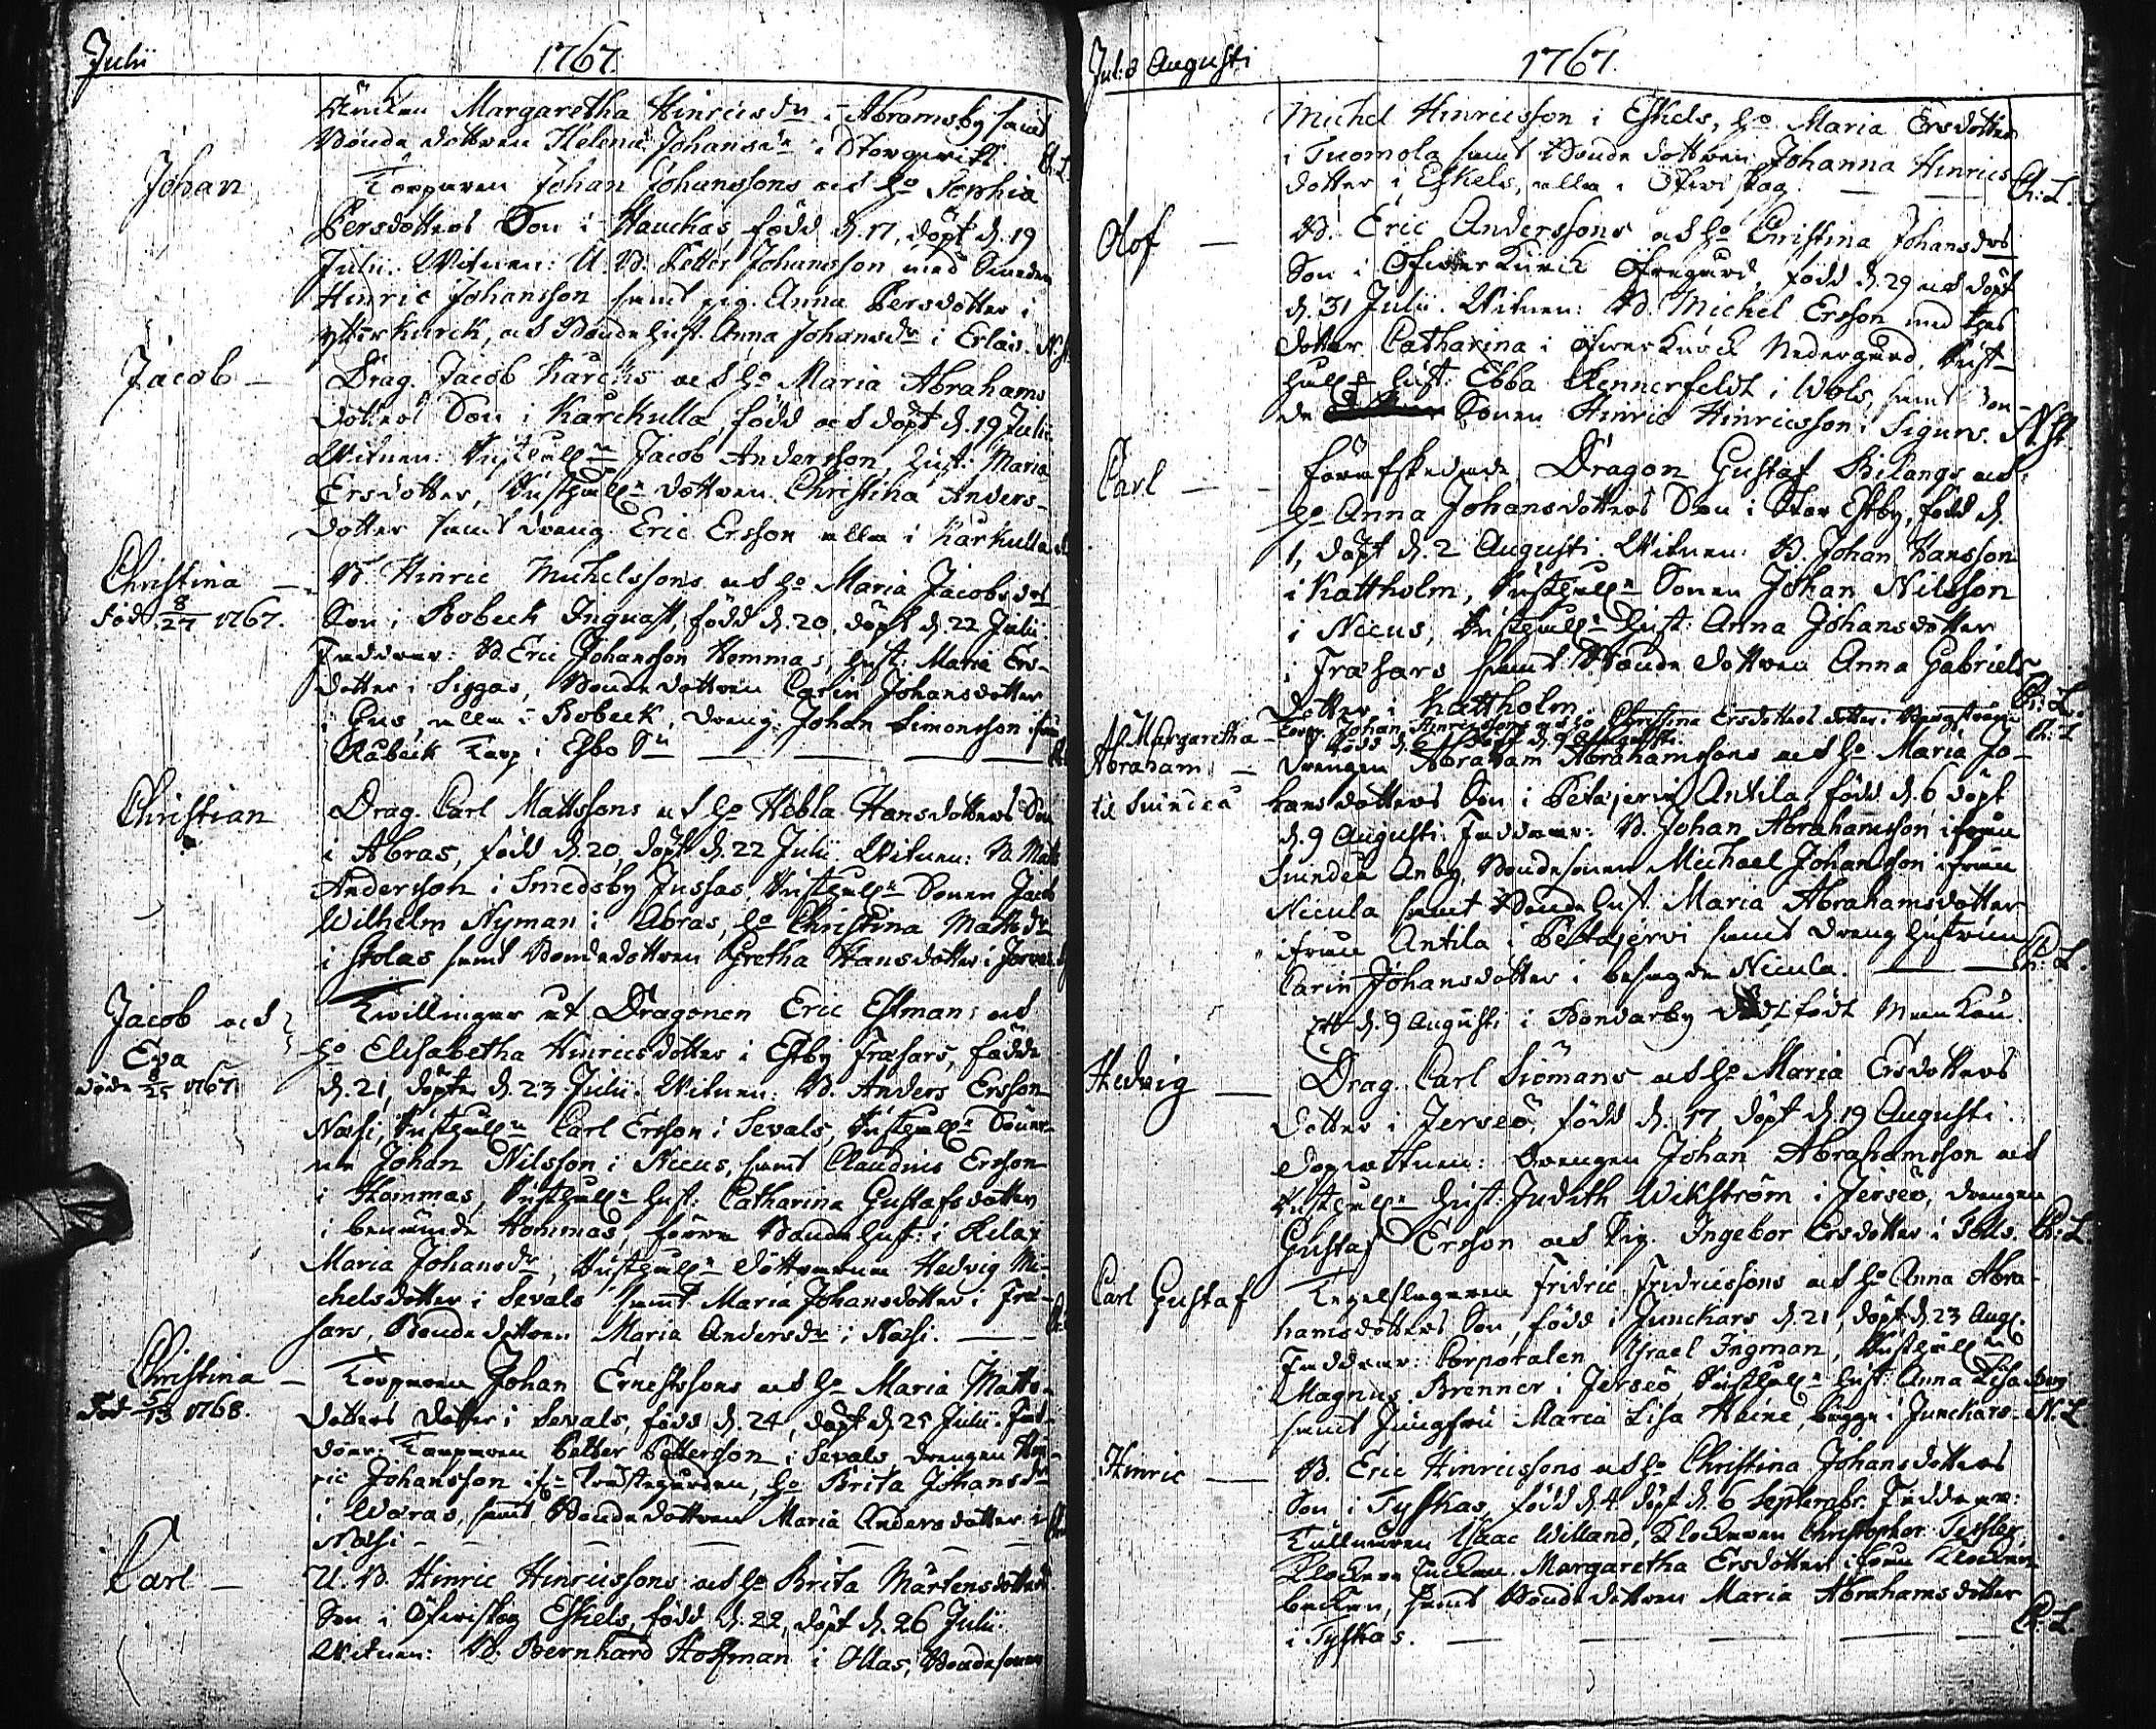 Julii 1767.
Änckan Margaretha Hinricsdr i Abramsby samt
Bonde dottren Helena Johansdr i Storgervik. Ch: L.
Johan
Torparen Johan Johanssons och ho Sophia
Persdotters Son i Hauckas, född d. 17, döpt d. 19
Julii. Witnen: U. B. Petter Johansson, med Smeden
Hinric Johansson samt pig. Anna Persdotter i
ytterkurck, och Bonde hust. Anna Johansdr i Erlars.
Jacob —
Drag. Jacob Karckis och ho Maria Abrahams
dotters Son i Karckulla, född och döpt d. 19 Julii
Witnen: Jacob Andersson, hust: Maria
Ersdotter, dottren Christina Anders-
dotter samt dreng Eric Ersson alla i Karkulla
Christina —
död 8/27 1767.
B. Hinric Michelssons och ho Maria Jacobsdrs
Son i Bobeck Ingvast, född d. 20, döpt d. 22 Julii
Faddrar: B. Eric Johansson Hommas, hust: Maria Ers-
dotter i Siggas, Bonde dottren Carin Johansdotter
i Gus, alla i Bobeck, dreng: Johan Simonsson ifrån
Råbäck Torp i Esbo Sn — — —
Christian
Drag. Carl Mattssons och ho Hebla Hansdotters Son
i Abras, född d. 20, döpt d. 22 Julii. Witnen: B. Matts
Andersson i Smedsby Jussas, Sonen Jacob
Wilhelm Nyman i Abras, ho Christina Mattsdr
i Stolas samt Bondedottren Gretha Hansdotter i
Jacob och
Eva
döde 8/25 1767
Twillingar af Dragonen Eric Estman och
ho Elisabetha Hinricsdotter i Estby Fräsars, födde
d. 21, döpte d. 23 Julii. Witnen: B. Anders Ersson
Näsi, Carl Ersson i Sevals, Söner-
na Johan Nilsson i Niccus, samt Claudius Ersson
i Hommas, hust: Catharina Gustafsdotter
i benämnde Hommas, förra Bonde hust: i
Maria Johansdr, döttrarna Hedvig Mi-
chelsdotter i Sevals samt Maria Johansdotter i Frä-
sars, Bonde dottren Maria Andersdr i Näsi. —
Christina —
död 5/13 1768.
Torparen Johan Ernestssons och ho Maria Matts-
dotters dotter i Sevals, född d. 24, döpt d. 25 Julii. Fad-
drar: Torparen Petter Pettersson i Sevals, drengen Hin-
ric Johansson, ho Brita Johansdr
i Woras, samt Bonde dottren Maria Andersdotter i
Näsi — — — — —
Carl —
U. B. Hinric Hinricssons och ho Brita Mårtensdotters
Son i Öfwiskog Eskels, född d. 22, döpt d. 26 Julii.
Witnen: B. Bernhard Hoffman i Ollas, Bondesonen
Jul: & Augusti 1767.
Michel Hinricsson i Eskels, ho Maria Ersdotter
i Tuomola samt Bonde dottren Johanna Hinrics
dotter i Eskels, alla i Öfwiskog. — — Ch: L.
Olof —
B. Eric Anderssons och ho Christina Johansdrs
Son i Öfwerkurck Öfregård, född d. 29 och döpt
d. 31 Julii. Witnen: B. Michel Ersson med
dotter Catharina i Öfwerkurck Nedergård,
hust: Ebba Rennerfeldt i Wols, samt Bon-
de Sonen Hinric Hinricsson i Sigurs.
Carl — —
förafskedade Dragon Gustaf Bilangs och
ho Anna Johansdotters Son i Stor Estby, född d.
1, döpt d. 2 Augusti. Witnen: B. Johan Hansson
i Kattholm, Sonen Johan Nilsson
i Niccus, hust: Anna Johansdotter
i Fräsars samt Bonde dottren Anna Gabriels
dotter i Kattholm. Ch: L.
Margaretha —
Torp. Johan Hinricssons och ho Christina Ersdotters dotter i Ch: L
född d. döpt d. 9 Augusti.
Abraham —
til Suindea
Drengen Abraham Abrahamssons och ho Maria Jo-
hansdotters Son i Petäjervi Antila, född d. 6 döpt
d. 9 Augusti. Faddrar: B. Johan Abrahamsson ifrån
Suindea Anby, Bondesonen Michael Johansson ifrån
Nicula samt Bonde hust. Maria Abrahamsdotter
ifrån Antila i Petäjervi samt dreng hustrun
Carin Johansdotter i besagde Nicula. — — Ch: L.
d. 9 Augusti i Bondarby dödfödt
Hedvig —
Drag. Carl Siömans och ho Maria Ersdotters
dotter i Jerseö, född d. 17, döpt d. 19 Augusti.
Dopwittnen: Drengen Johan Abrahamsson och
hust: Judith Wikström i Jerseö, drengen
Gustaf Ersson och Pig. Ingebor Ersdotter i Tolls. Ch: L.
Carl Gustaf
Tegelslagaren Fridric Fridricssons och ho Anna Abra-
hamsdotters Son, född i Junckars d. 21, döpt d. 23 Aug.
Faddrar: Corporalen Israel Ingman,
Magnus Brenner i Jerseö, hust: Anna Lisa Berg
samt Jungfru Maria Lisa Heine, bägge i Junckars. N. L.
Hinric —
B. Eric Hinricssons och ho Christina Johansdotters
Son i Tyskas, född d. 4 döpt d. 6 Septembr. Faddrar:
Tullnären Isaac Willand, Klockaren Christopher Teshler,
Klockare Enckan Margaretha Ersdotter ifrån Klockar
backan, samt Bonde dottren Maria Abrahamsdotter
i Tyskas. — — — — Ch: L.